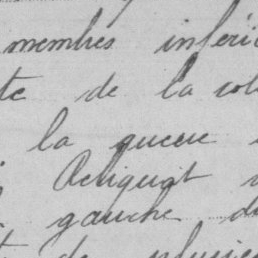 membres inféri
te de la col
la queue
gauche d
de plusie